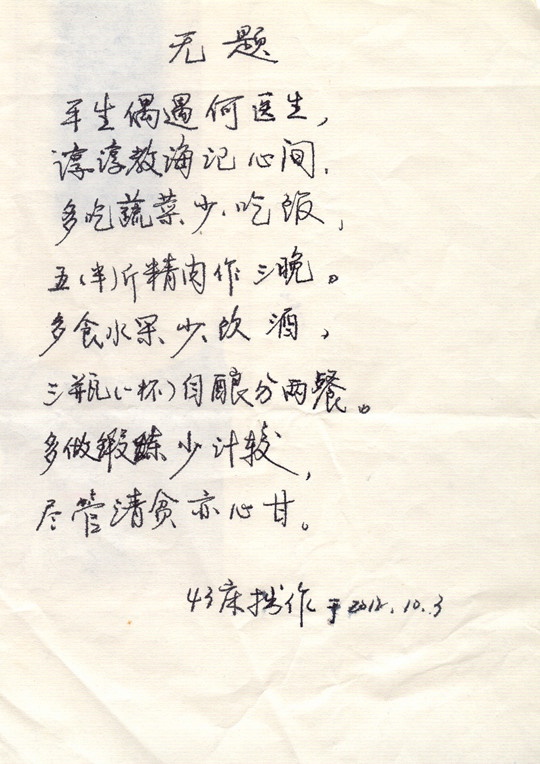 无题
平生偶遇何医生,
谆谆教诲记心间.
多吃蔬菜少吃饭,
五(半)斤精肉作三晚。
多食水果少饮酒,
三瓶(一杯)自酿分两餐。
多做锻炼少计较,
尽管清贫亦心甘。
43床拙作于2012.10.3